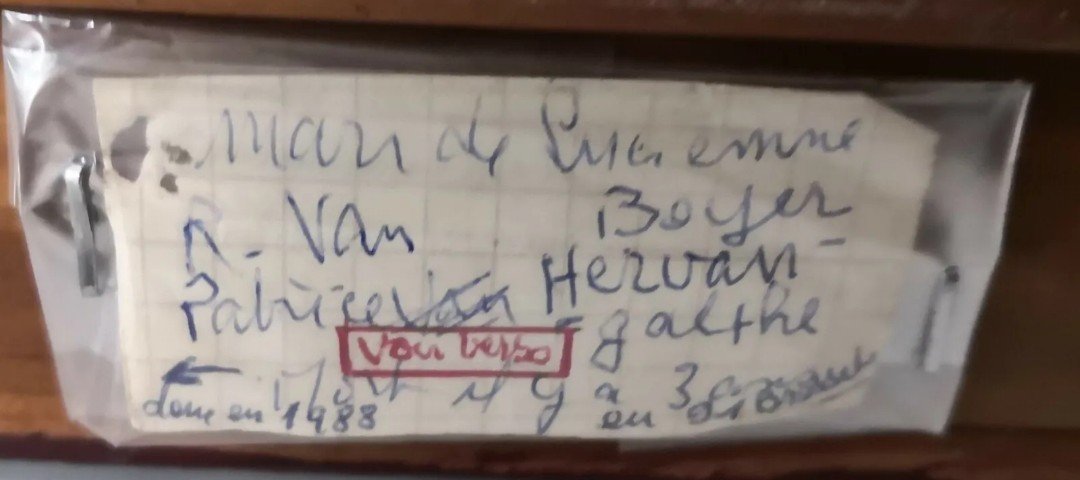 Mari de Lucienne
R. Van Boyer
Patrice Van Hervan-
galthe
Voir verso
← Mort il y a 3
donc en 1988 en